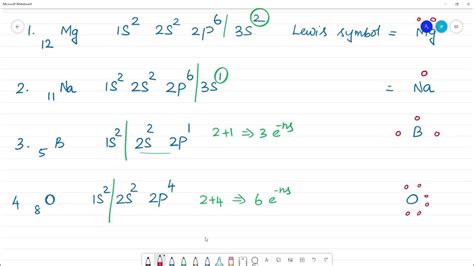 Microsoft Whiteboard
1. ₁₂Mg 1S² 2S² 2P⁶ | 3S² Lewis symbol = Mg
2. ₁₁Na 1S² 2S² 2P⁶ | 3S¹ = Na
3. ₅B 1S² | 2S² 2P¹ 2+1 ⇒ 3 e⁻ⁿˢ B
4 ₈O 1S² | 2S² 2P⁴ 2+4 ⇒ 6 e⁻ⁿˢ O